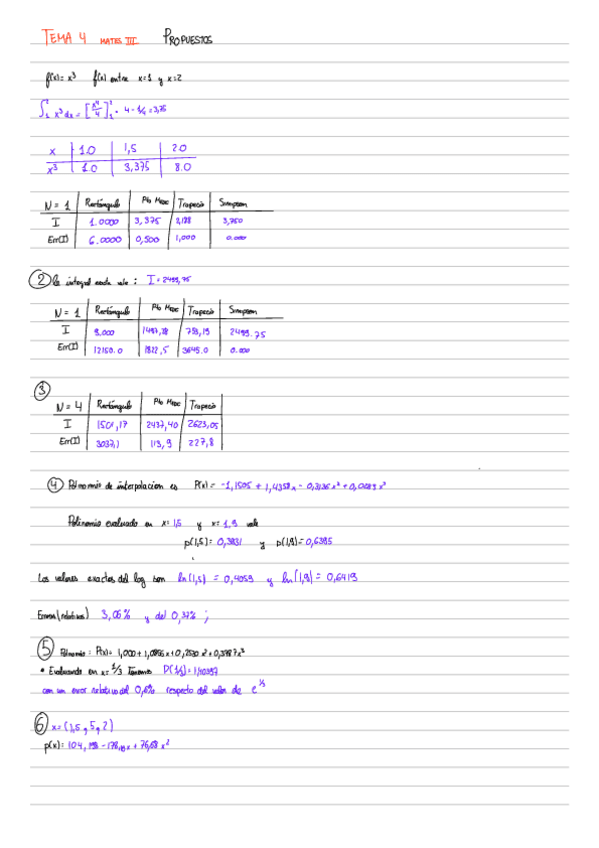 TEMA 4 MATES III PROPUESTOS
f(x)= x³ f(x) entre x=1 y x=2
∫₁² x³dx = [x⁴/4]₁² = 4 - 1/4 = 3,75
x | 1.0 | 1,5 | 2.0
x³ | 1.0 | 3,375 | 8.0
N = 1 | Rectángulo | Pto Medio | Trapecio | Simpson
I | 1.0000 | 3,375 | | 3,750
Err(I) | 6.0000 | 0,500 | 1,000 | 0.000
② la integral exacta vale : I = 2499,75
N = 1 | Rectángulo | Pto Medio | Trapecio | Simpson
I | 9.000 | | | 2499.75
Err(I) | 12150.0 | 1822,5 | 3645.0 | 0.000
③
N = 4 | Rectángulo | Pto Medio | Trapecio
I | 1501,17 | 2437,40 | 2623,05
Err(I) | 3037,1 | 113,9 | 227,8
④ Polinomio de interpolación es P(x) = -1,1505 + 1,4358x - 0,3136x² + 0,0283x³
Polinomio evaluado en x= 1,5 y x= 1.9 vale
p(1,5)= 0,3931 y p(1,9)= 0,6395
Los valores exactos del log son ln(1,5) = 0,4059 y ln(1,9) = 0,6419
Errores (relativos) 3,06% y del 0,37% ;
⑤ Polinomio : P(x)= 1,000 + x + x² + x³
• Evaluando en x= 1/3 tenemos P(1/3) =
con un error relativo del 0,6% respecto del valor de e^1/3
⑥ x = (1,5 , 5 , 2)
p(x)= 104, - 178, x + 76,68 x²